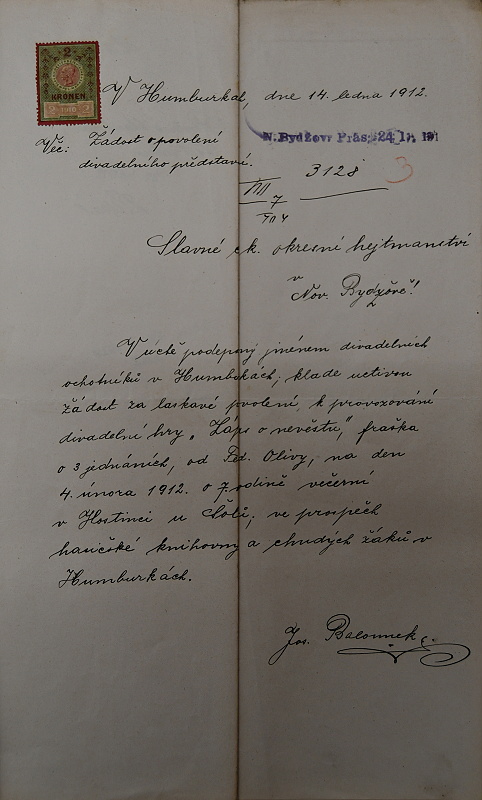 2
KRONEN
2 1910 2
V Humburkách, dne 14. ledna 1912.
Věc: Žádost o povolení
divadelního představ.
N. Bydžov Präs. 24 191
3128
3
VIII
7
Slavné ck. okresní hejtmanství
v
Nov. Bydžově!
V úctě podepsaný jménem divadelních
ochotníků v Humburkách, klade uctivou
žádost za laskavé povolení, k provozování
divadelní hry „Zápas o nevěstu," fraška
o 3 jednáních, od Fed. Olivy, na den
4. února 1912. o 7. hodině večerní
v Hostinci u ve prospěch
hasičské knihovny a chudých žáků v
Humburkách.
Jos.